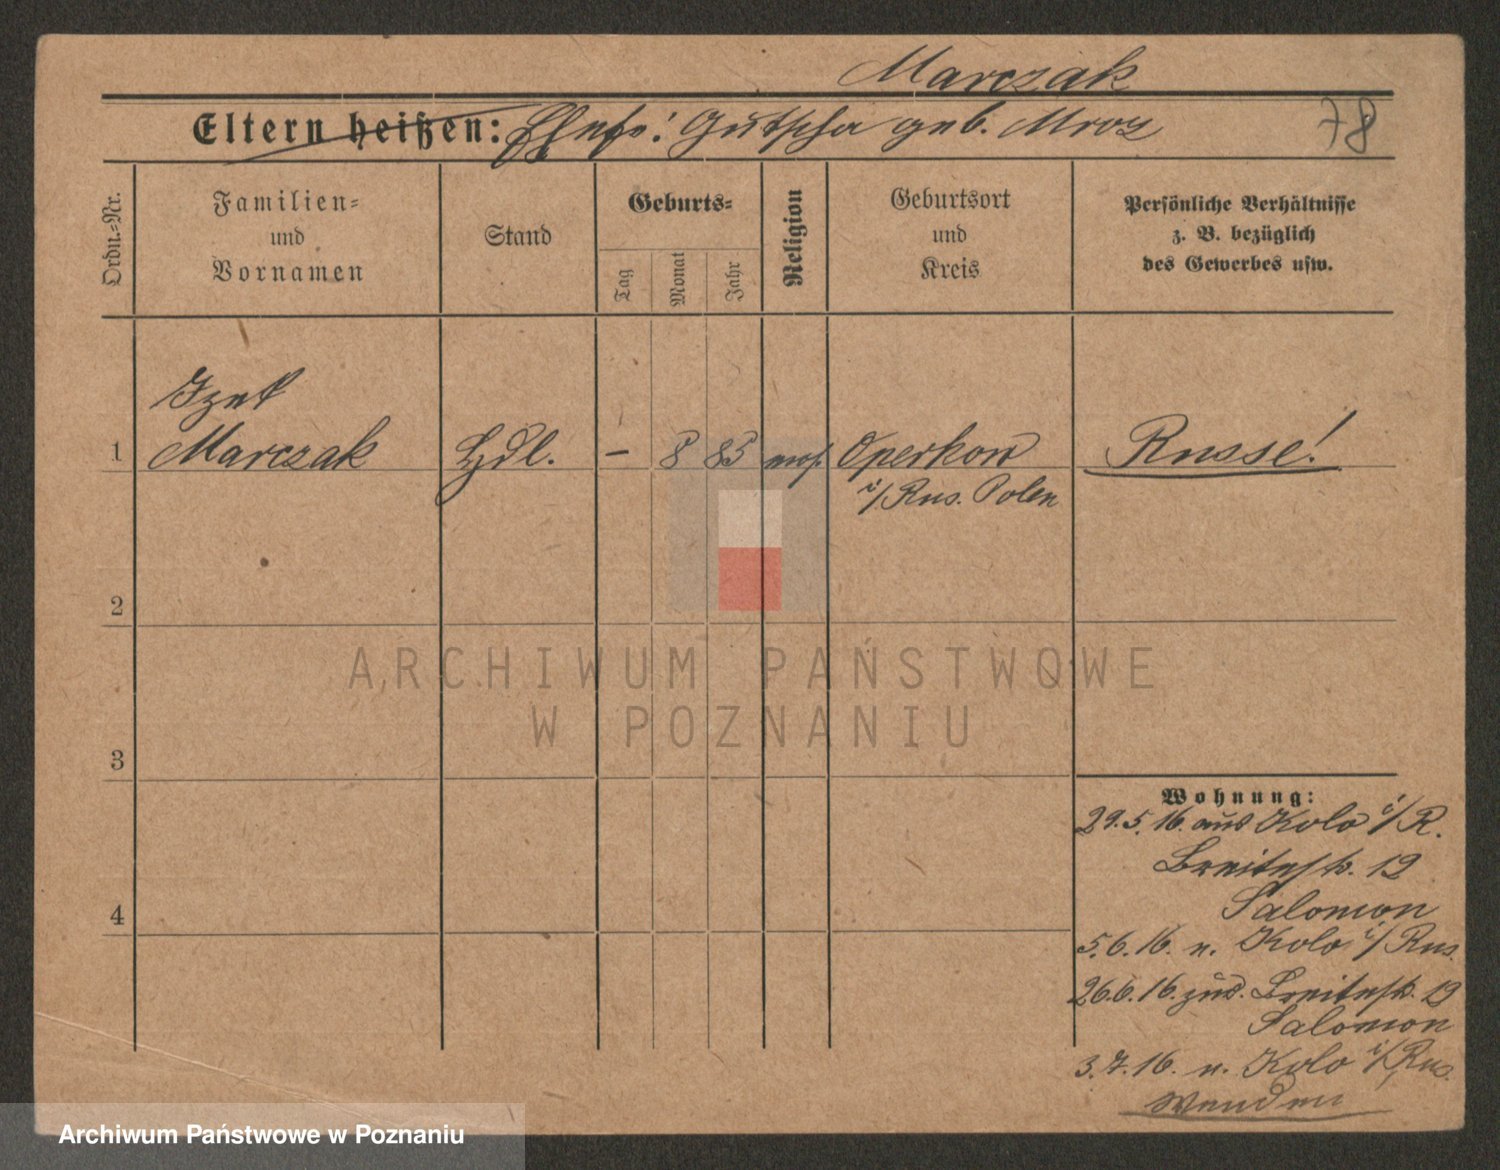 Marczak
Eltern heißen: Ehefr: Gutscha geb. Mroz
78
Ordn.-Nr.
Familien-
und
Vornamen
Stand
Geburts-
Tag
Monat
Jahr
Religion
Geburtsort
und
Kreis
Persönliche Verhältnisse
z. B. bezüglich
des Gewerbes usw.
Izek
1 Marczak Hdl. – 8 85 mos. Operkow Russe!
i/Rus. Polen
2
ARCHIWUM PAŃSTWOWE
W POZNANIU
3
Wohnung:
29.5.16. aus Kolo i/R.
Breitestr. 19
4
Salomon
5.6.16. n. Kolo i/Rus.
26.6.16. zud. Breitestr. 19
Salomon
3.7.16. n. Kolo i/Rus.
Wenden
Archiwum Państwowe w Poznaniu